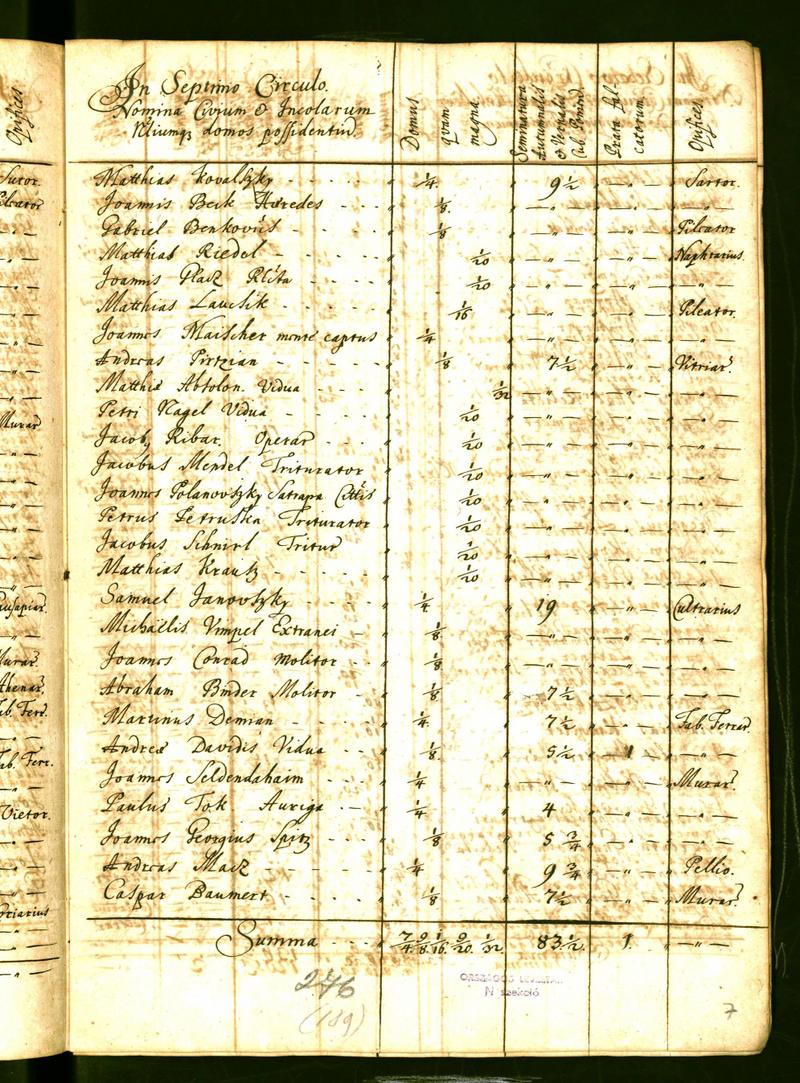 In Septimo Circulo.
Nomina Civium & Incolarum
Aliumq domos possidentiũ.
Domus
qvam
magna.
Seminatura
Autumnalis
& Vernalis
Cub. Poson.
Prata fal-
catorum.
Opifices.
Matthias Kovalszky - - - - - " 1/4. " 9 1/2 " — " — Sartor.
Joannis Beck Hæredes - - - - " 1/8. " — " — " — " — — " —
Gabriel Benkovits - - - - " 1/8 " — " — " — " — Pileator
Matthias Riedel - - - - " 1/20 " — " — " — " — Naphtarius.
Joannis Placz - - - - " 1/20 " — " — " — " — — " —
Matthias Lauczik - - - - " 1/16 " — " — " — " — Pileator.
Joannes Maischer mente captus " 1/4 " — " — " — " — — " —
Andreas Pirtzian - - - - " 1/8 " 7 1/2 " — " — Vitriar.
Matthiæ Absolon Vidua - - - " 1/32 " — " — " — " — — " —
Petri Nagel Vidua - - - - " 1/20 " — " — " — " — — " —
Jacob Ribar. Operar - - - " 1/20 " — " — " — " — — " —
Jacobus Mendel Triturator " 1/20 " — " — " — " — — " —
Joannes Polanovszky Satrapa Cittis " 1/20 " — " — " — " — — " —
Petrus Petruska Triturator " 1/20 " — " — " — " — — " —
Jacobus Schnirl Tritur " 1/20 " — " — " — " — — " —
Matthias Krautz - - - - " 1/20 " — " — " — " — — " —
Samuel Janovszky - - - - " 1/4. " 19 " — " — Cultrarius
Michaëlis Vmpel Extranei - - " 1/8 " — " — " — " — — " —
Joannes Conrad Molitor - - " 1/8 " — " — " — " — — " —
Abraham Binder Molitor - - " 1/8 " 7 1/2 " — " — — " —
Martinus Demian - - - - " 1/4. " 7 1/2 " — " — Fab. Ferrar.
Andreæ Davidis Vidua - - " 1/8. " 5 1/2 " — 1 — — " —
Joannes Seldendahaim - - - " 1/4 " — " — " — " — Murar.
Paulus Tok Auriga - — " 1/4 " 4 " — " — — " —
Joannes Georgius Spitz - - - " 1/8 " 5 3/4 " — " — — " —
Andreas Macz - - - - " 1/4 " 9 3/4 " — " — Pellio.
Caspar Baumert - - - - " 1/8 " 7 1/2 " — " — Murar.
Summa - - - " 7/4. 9/8. 1/16. 9/20. 1/32 " 83 1/2. 1. — " —
246
(139)
ORSZÁGOS LEVÉLTÁR
N szekció
7